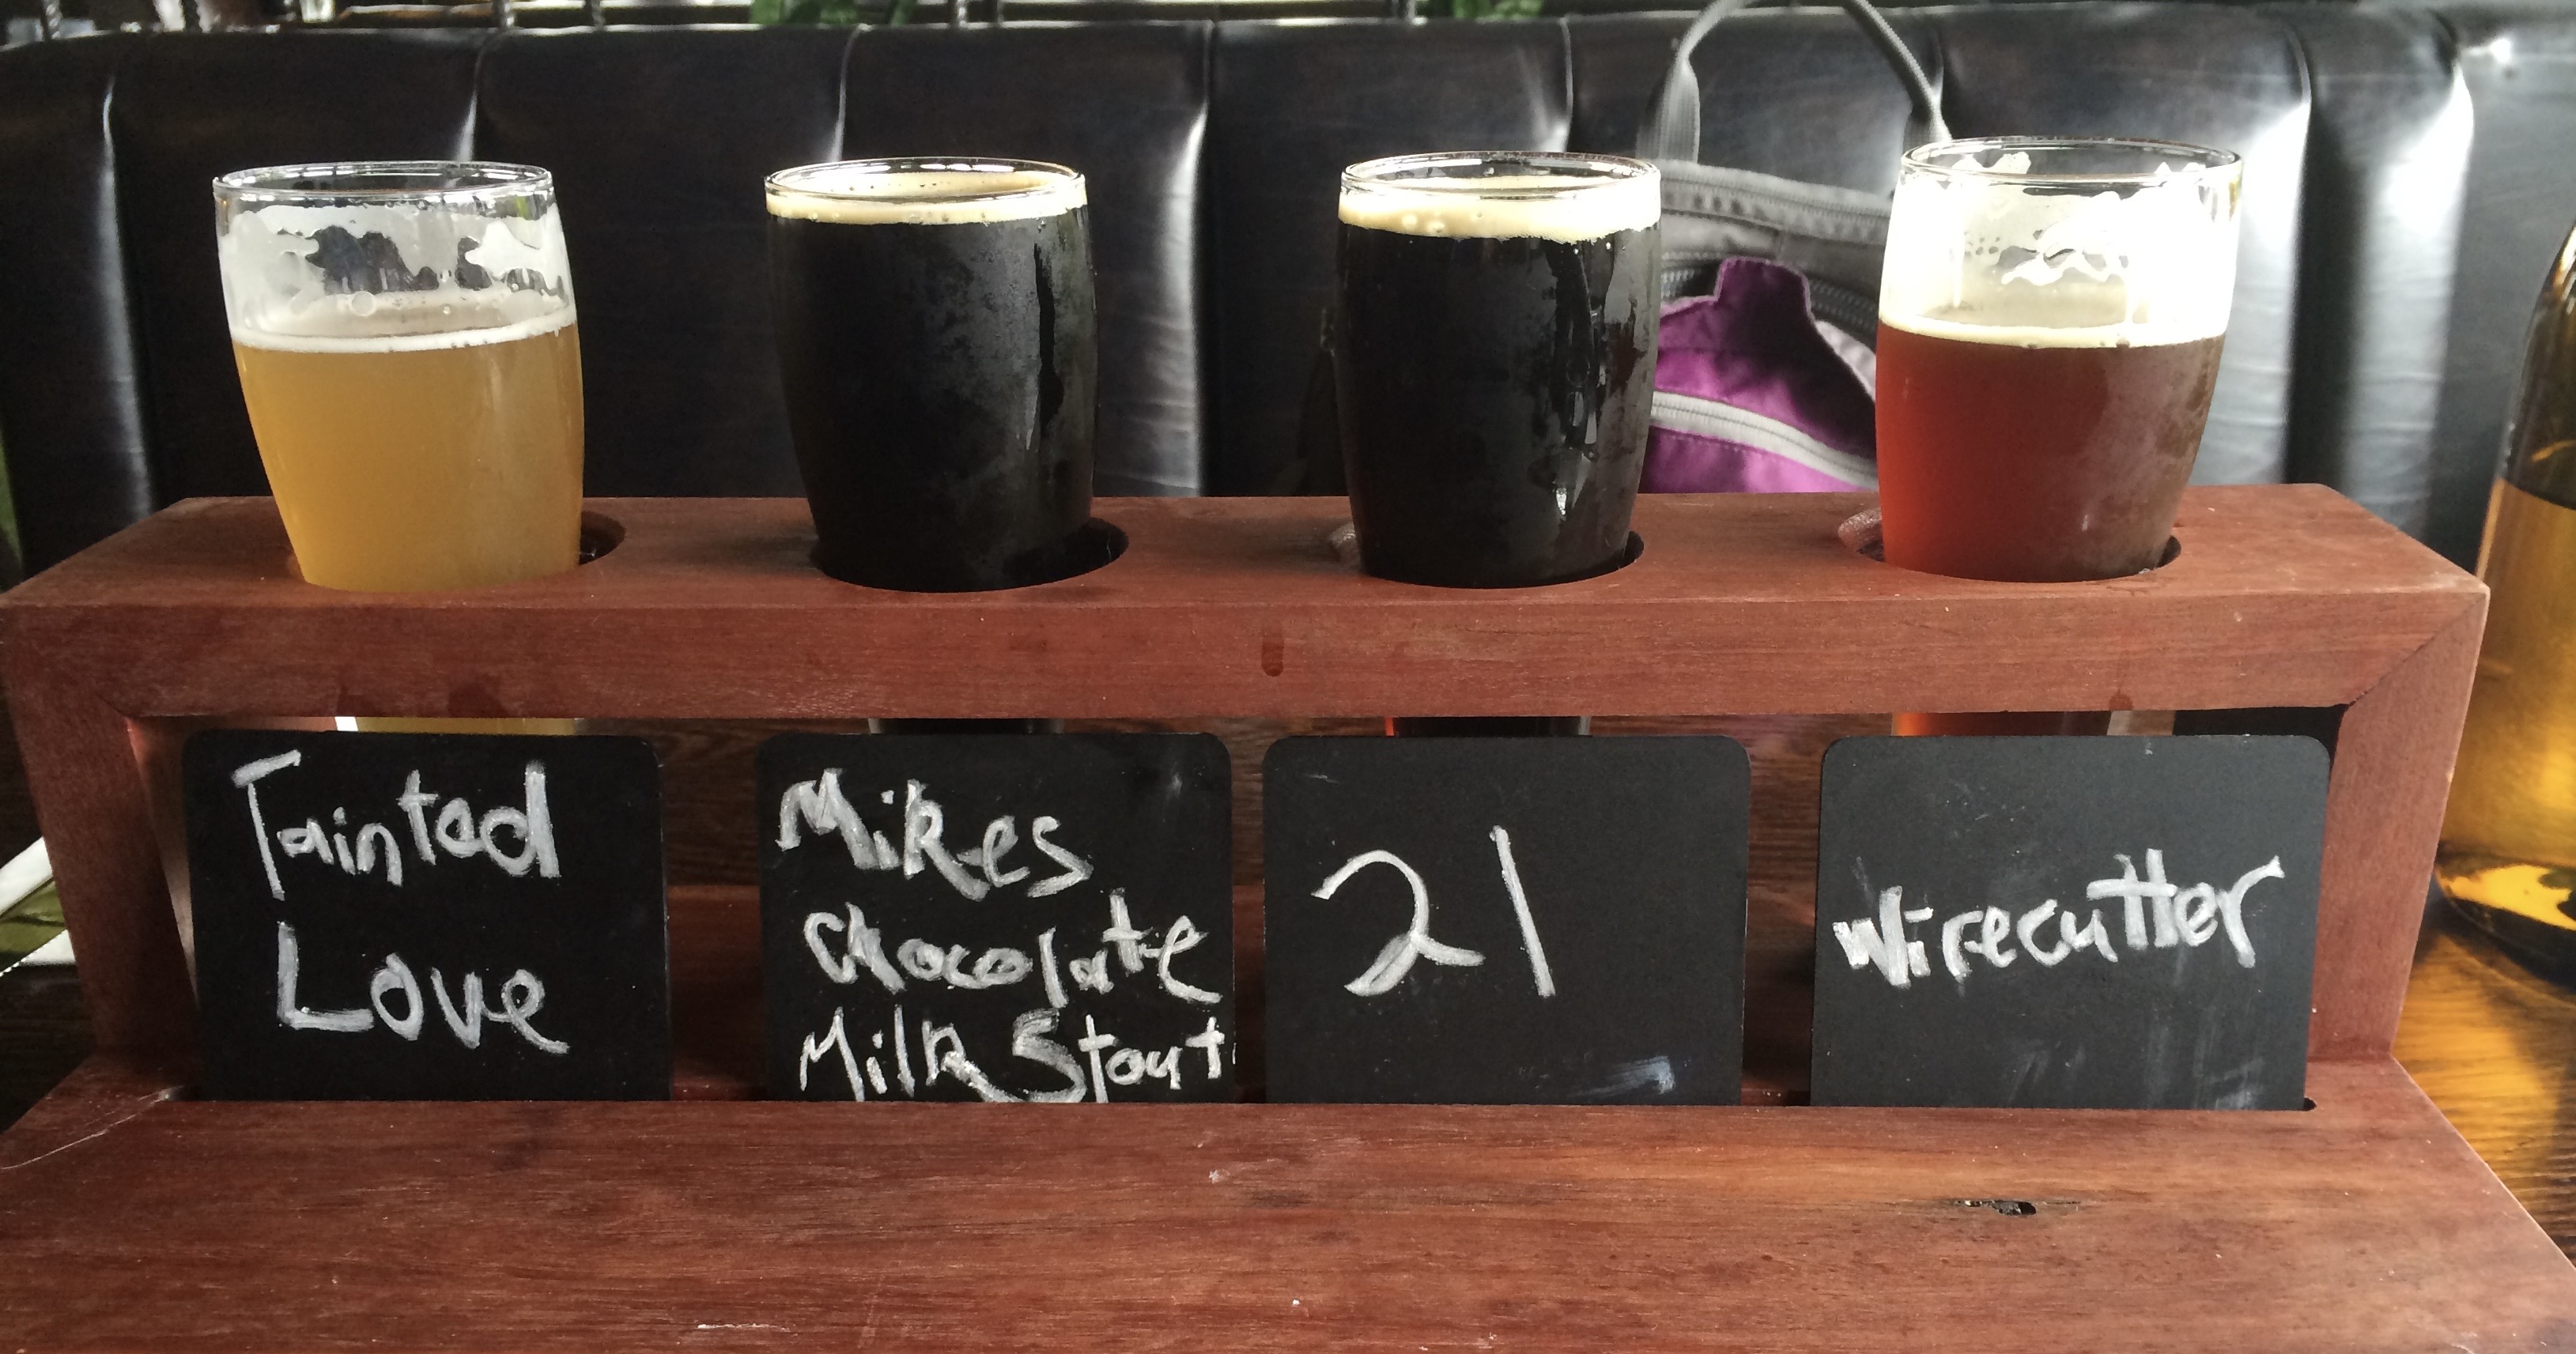 Tainted
Love
Mikes
Chocolate
Milk Stout
21
Wirecutter